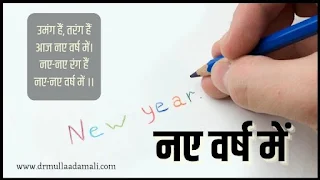 उमंग हैं, तरंग हैं
आज नए वर्ष में।
नए-नए रंग हैं
नए-नए वर्ष में ।।
New year.
नए वर्ष में
www.drmullaadamali.com